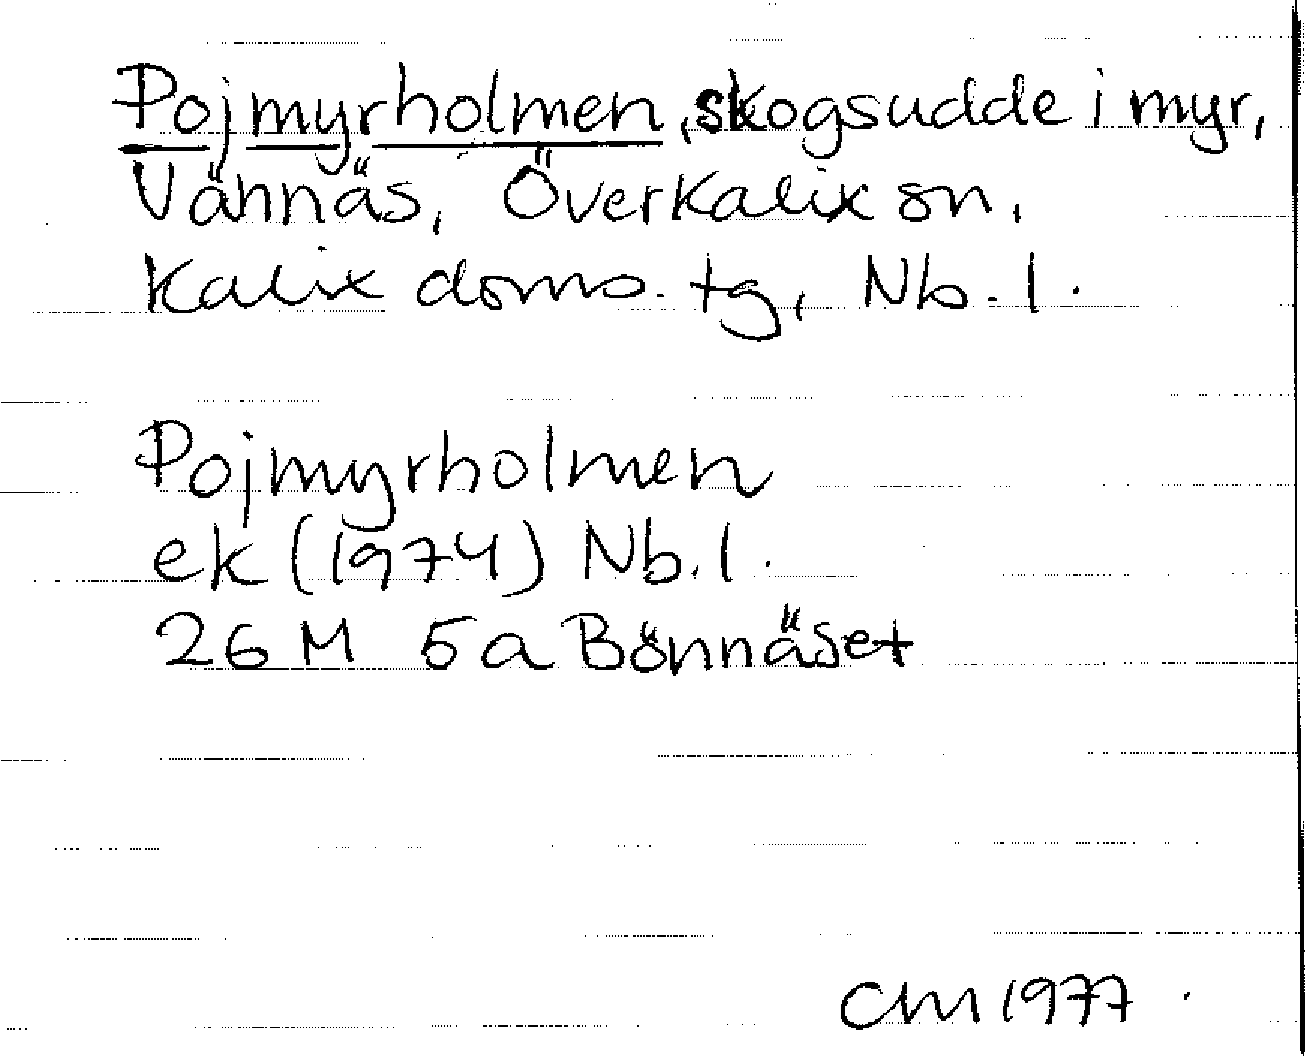 Pojmyrholmen, skogsudde i myr,
Vännäs, Överkalix sn,
Kalix doms. tg, Nb. l.
Pojmyrholmen
ek (1974) Nb. l.
26 M 5a Bönnäset
CM 1977